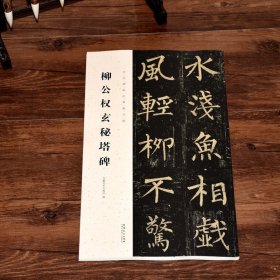 柳公权玄秘塔碑
水淺魚相戯
風輕柳不驚